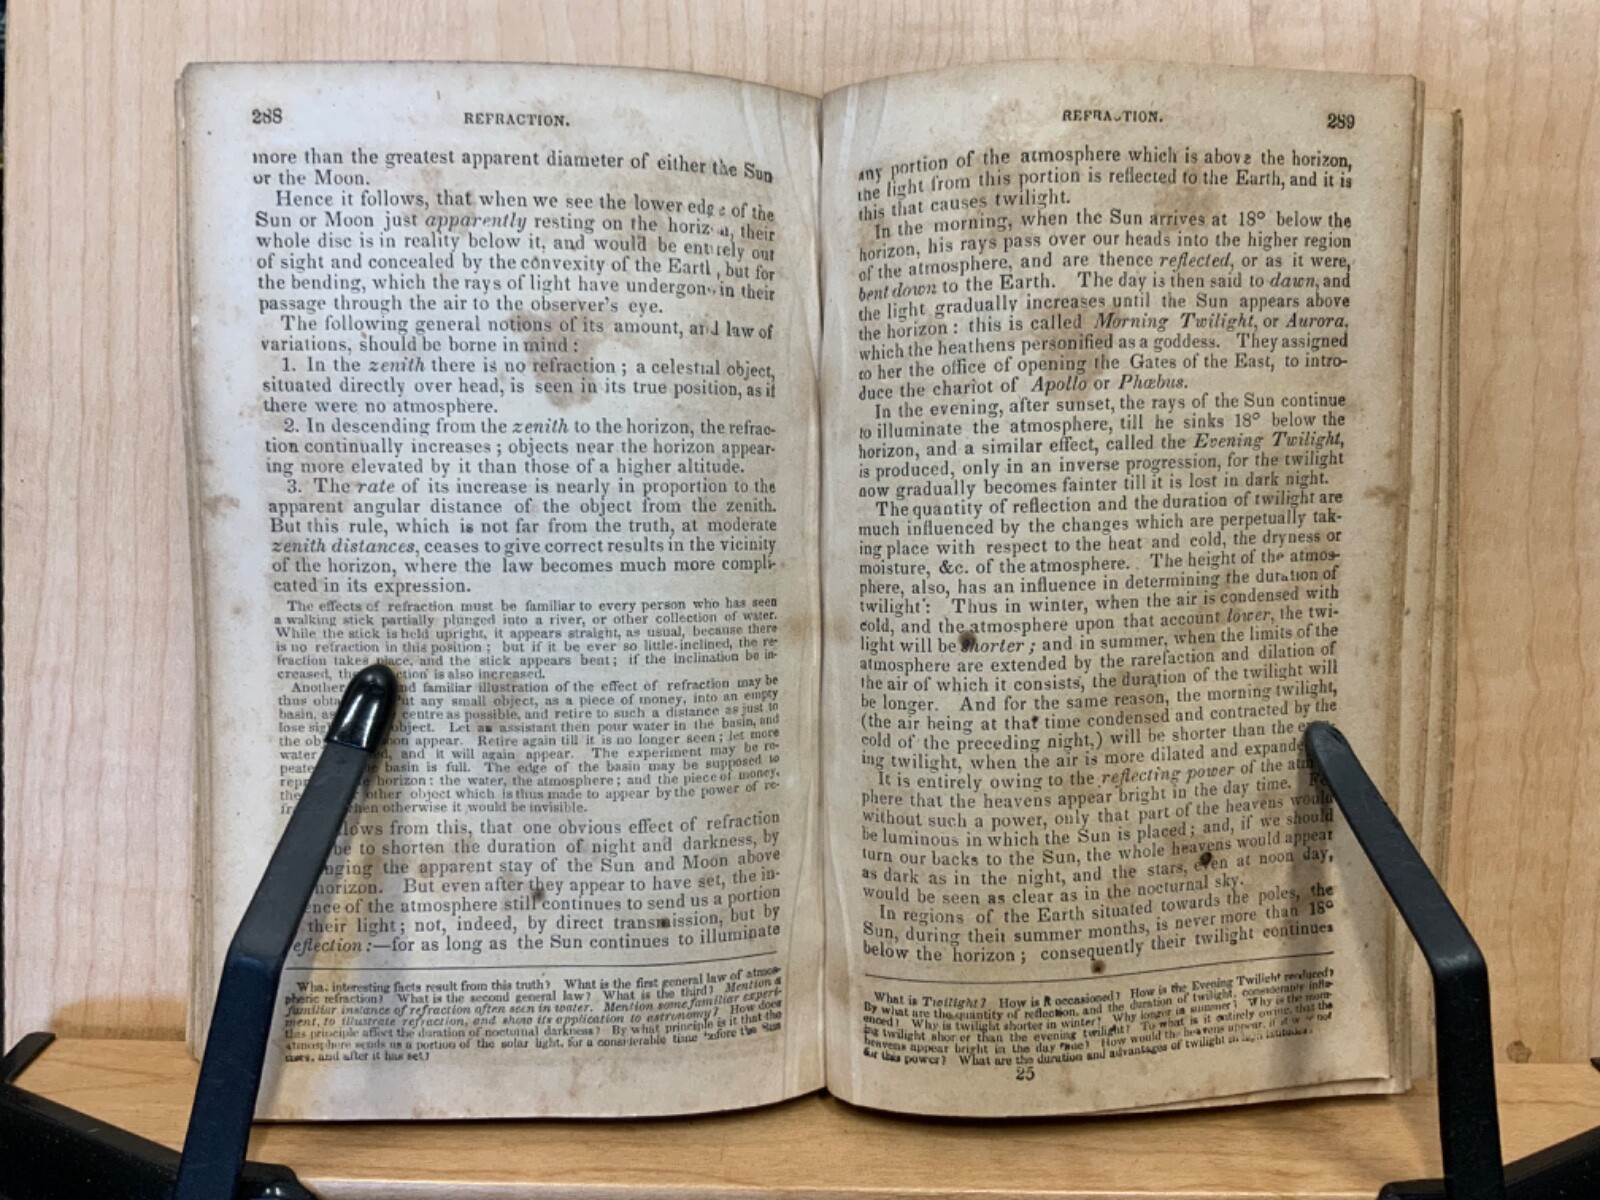 288
REFRACTION.
more than the greatest apparent diameter of either the Sun
or the Moon.
Hence it follows, that when we see the lower edge of the
Sun or Moon just apparently resting on the horizon, their
whole disc is in reality below it, and would be entirely out
of sight and concealed by the convexity of the Earth, but for
the bending, which the rays of light have undergone in their
passage through the air to the observer's eye.
The following general notions of its amount, and law of
variations, should be borne in mind :
1. In the zenith there is no refraction ; a celestial object,
situated directly over head, is seen in its true position, as if
there were no atmosphere.
2. In descending from the zenith to the horizon, the refrac-
tion continually increases ; objects near the horizon appear-
ing more elevated by it than those of a higher altitude.
3. The rate of its increase is nearly in proportion to the
apparent angular distance of the object from the zenith.
But this rule, which is not far from the truth, at moderate
zenith distances, ceases to give correct results in the vicinity
of the horizon, where the law becomes much more compli-
cated in its expression.
The effects of refraction must be familiar to every person who has seen
a walking stick partially plunged into a river, or other collection of water.
While the stick is held upright, it appears straight, as usual, because there
is no refraction in this position ; but if it be ever so little inclined, the re-
fraction takes place, and the stick appears bent ; if the inclination be in-
creased, the ction is also increased.
Another nd familiar illustration of the effect of refraction may be
thus obta ut any small object, as a piece of money, into an empty
basin, as centre as possible, and retire to such a distance as just to
lose sig object. Let an assistant then pour water in the basin, and
the ob oon appear. Retire again till it is no longer seen ; let more
water d, and it will again appear. The experiment may be re-
peate basin is full. The edge of the basin may be supposed to
repr horizon : the water, the atmosphere ; and the piece of money,
the other object which is thus made to appear by the power of re-
fr hen otherwise it would be invisible.
lows from this, that one obvious effect of refraction
be to shorten the duration of night and darkness, by
nging the apparent stay of the Sun and Moon above
horizon. But even after they appear to have set, the in-
ence of the atmosphere still continues to send us a portion
their light ; not, indeed, by direct transmission, but by
eflection :—for as long as the Sun continues to illuminate
What interesting facts result from this truth? What is the first general law of atmos-
pheric refraction? What is the second general law? What is the third? Mention a
familiar instance of refraction often seen in water. Mention some familiar experi-
ment, to illustrate refraction, and show its application to astronomy? How does
this principle affect the duration of nocturnal darkness? By what principle is it that the
atmosphere sends us a portion of the solar light, for a considerable time before the Sun
rises, and after it has set?
REFRACTION.
289
any portion of the atmosphere which is above the horizon,
the light from this portion is reflected to the Earth, and it is
this that causes twilight.
In the morning, when the Sun arrives at 18° below the
horizon, his rays pass over our heads into the higher region
of the atmosphere, and are thence reflected, or as it were,
bent down to the Earth. The day is then said to dawn, and
the light gradually increases until the Sun appears above
the horizon : this is called Morning Twilight, or Aurora,
which the heathens personified as a goddess. They assigned
to her the office of opening the Gates of the East, to intro-
duce the chariot of Apollo or Phœbus.
In the evening, after sunset, the rays of the Sun continue
to illuminate the atmosphere, till he sinks 18° below the
horizon, and a similar effect, called the Evening Twilight,
is produced, only in an inverse progression, for the twilight
now gradually becomes fainter till it is lost in dark night.
The quantity of reflection and the duration of twilight are
much influenced by the changes which are perpetually tak-
ing place with respect to the heat and cold, the dryness or
moisture, &c. of the atmosphere. The height of the atmos-
phere, also, has an influence in determining the duration of
twilight : Thus in winter, when the air is condensed with
cold, and the atmosphere upon that account lower, the twi-
light will be shorter ; and in summer, when the limits of the
atmosphere are extended by the rarefaction and dilation of
the air of which it consists, the duration of the twilight will
be longer. And for the same reason, the morning twilight,
(the air being at that time condensed and contracted by the
cold of the preceding night,) will be shorter than the
ing twilight, when the air is more dilated and expande
It is entirely owing to the reflecting power of the atm
phere that the heavens appear bright in the day time. For
without such a power, only that part of the heavens would
be luminous in which the Sun is placed ; and, if we should
turn our backs to the Sun, the whole heavens would appear
as dark as in the night, and the stars, even at noon day,
would be seen as clear as in the nocturnal sky.
In regions of the Earth situated towards the poles, the
Sun, during their summer months, is never more than 18°
below the horizon ; consequently their twilight continues
What is Twilight? How is it occasioned? How is the Evening Twilight produced?
By what are the quantity of reflection, and the duration of twilight, considerably influ-
enced? Why is twilight shorter in winter? Why longer in summer? Why is the morn-
ing twilight shorter than the evening twilight? To what is it entirely owing, that the
heavens appear bright in the day time? How would the heavens appear, if it were not
for this power? What are the duration and advantages of twilight in high latitudes?
25